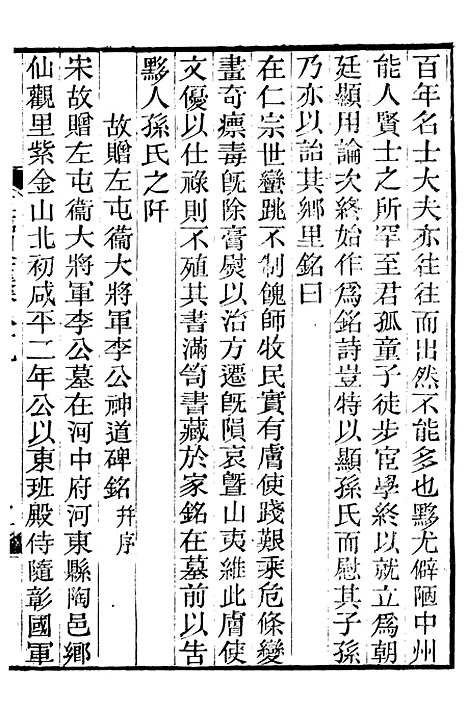 百年名士大夫亦往往而出然不能多也黟尤僻陋中州
能人賢士之所罕至君孤童子徒步宦學終以就立爲朝
廷顯用論次終始作爲銘詩豈特以顯孫氏而慰其子孫
乃亦以詒其鄉里銘曰
在仁宗世蠻跳不制餽師牧民實有膚使踐艱乘危條變
畫奇瘭毒旣除膏熨以治方遷旣隕哀暨山夷維此膚使
文優以仕祿則不殖其書滿笥書藏於家銘在墓前以告
黟人孫氏之阡
故贈左屯衞大將軍李公神道碑銘幷序
宋故贈左屯衞大將軍李公墓在河中府河東縣陶邑鄉
仙觀里紫金山北初咸平二年公以東班殿侍隨彰國軍